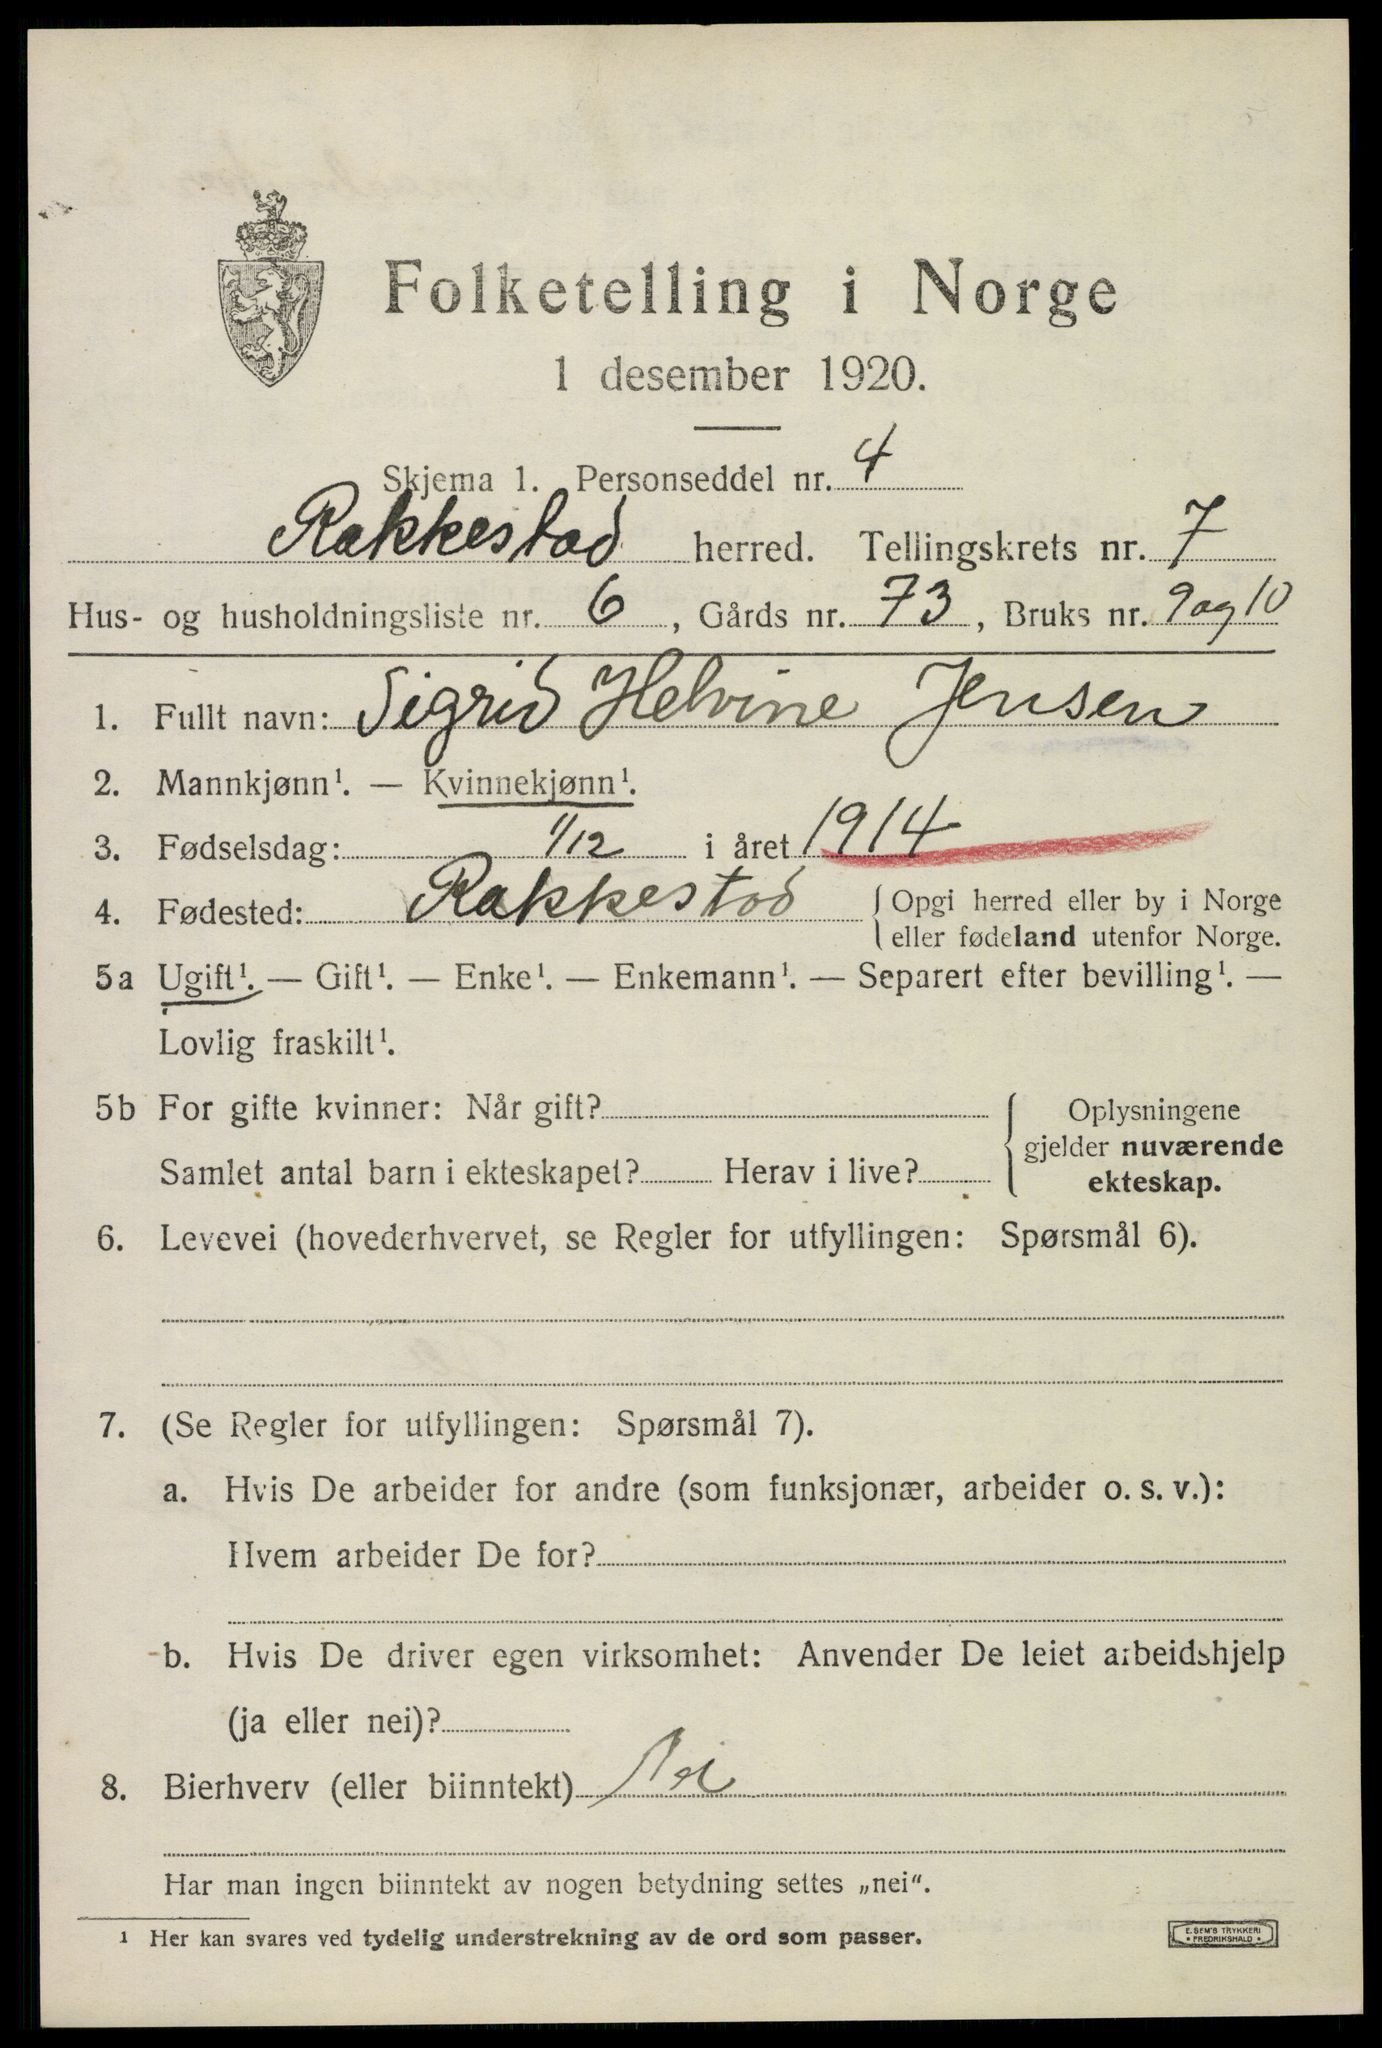 Folketelling i Norge
1 desember 1920.
Skjema 1. Personseddel nr. 4
Rakkestad herred. Tellingskrets nr. 7
Hus- og husholdningsliste nr. 6, Gårds nr. 73, Bruks nr. 9 og 10
1. Fullt navn: Sigrid Helvine Jensen
2. Mannkjønn¹. — Kvinnekjønn¹.
3. Fødselsdag: 1/12 i året 1914
4. Fødested: Rakkestad { Opgi herred eller by i Norge
eller fødeland utenfor Norge.
5a Ugift¹. — Gift¹. — Enke¹. — Enkemann¹. — Separert efter bevilling¹. —
Lovlig fraskilt¹.
5b For gifte kvinner: Når gift? { Oplysningene
gjelder nuværende
Samlet antal barn i ekteskapet? Herav i live? ekteskap.
6. Levevei (hovederhvervet, se Regler for utfyllingen: Spørsmål 6).
7. (Se Regler for utfyllingen: Spørsmål 7).
a. Hvis De arbeider for andre (som funksjonær, arbeider o. s. v.):
Hvem arbeider De for?
b. Hvis De driver egen virksomhet: Anvender De leiet arbeidshjelp
(ja eller nei)?
8. Bierhverv (eller biinntekt) Nei
Har man ingen biinntekt av nogen betydning settes „nei“.
¹ Her kan svares ved tydelig understrekning av de ord som passer.
E. SEM'S TRYKKERI
• FREDRIKSHALD •